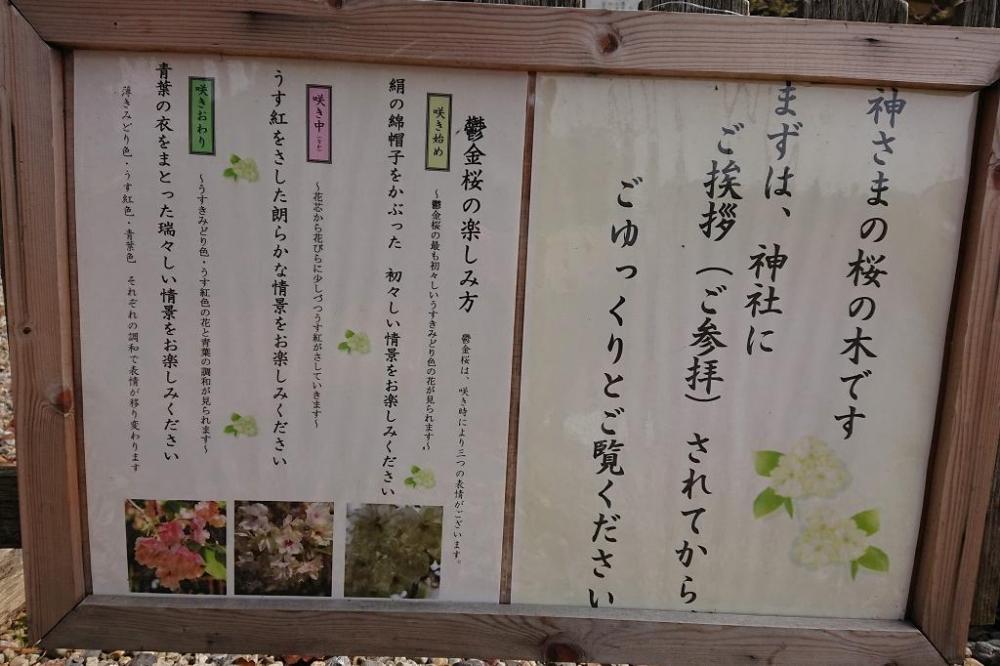 神さまの桜の木です
まずは、神社に
ご挨拶（ご参拝）されてから
ごゆっくりとご覧ください
鬱金桜の楽しみ方
鬱金桜は、咲き時により三つの表情がございます。
咲き始め
～鬱金桜の最も初々しいうすきみどり色の花が見られます～
絹の綿帽子をかぶった 初々しい情景をお楽しみください
咲き中
～花芯から花びらに少しづつうす紅がさしていきます～
うす紅をさした朗らかな情景をお楽しみください
咲きおわり
～うすきみどり色・うす紅色の花と青葉の調和が見られます～
青葉の衣をまとった瑞々しい情景をお楽しみください
薄きみどり色・うす紅色・青葉色 それぞれの調和で表情が移り変わります